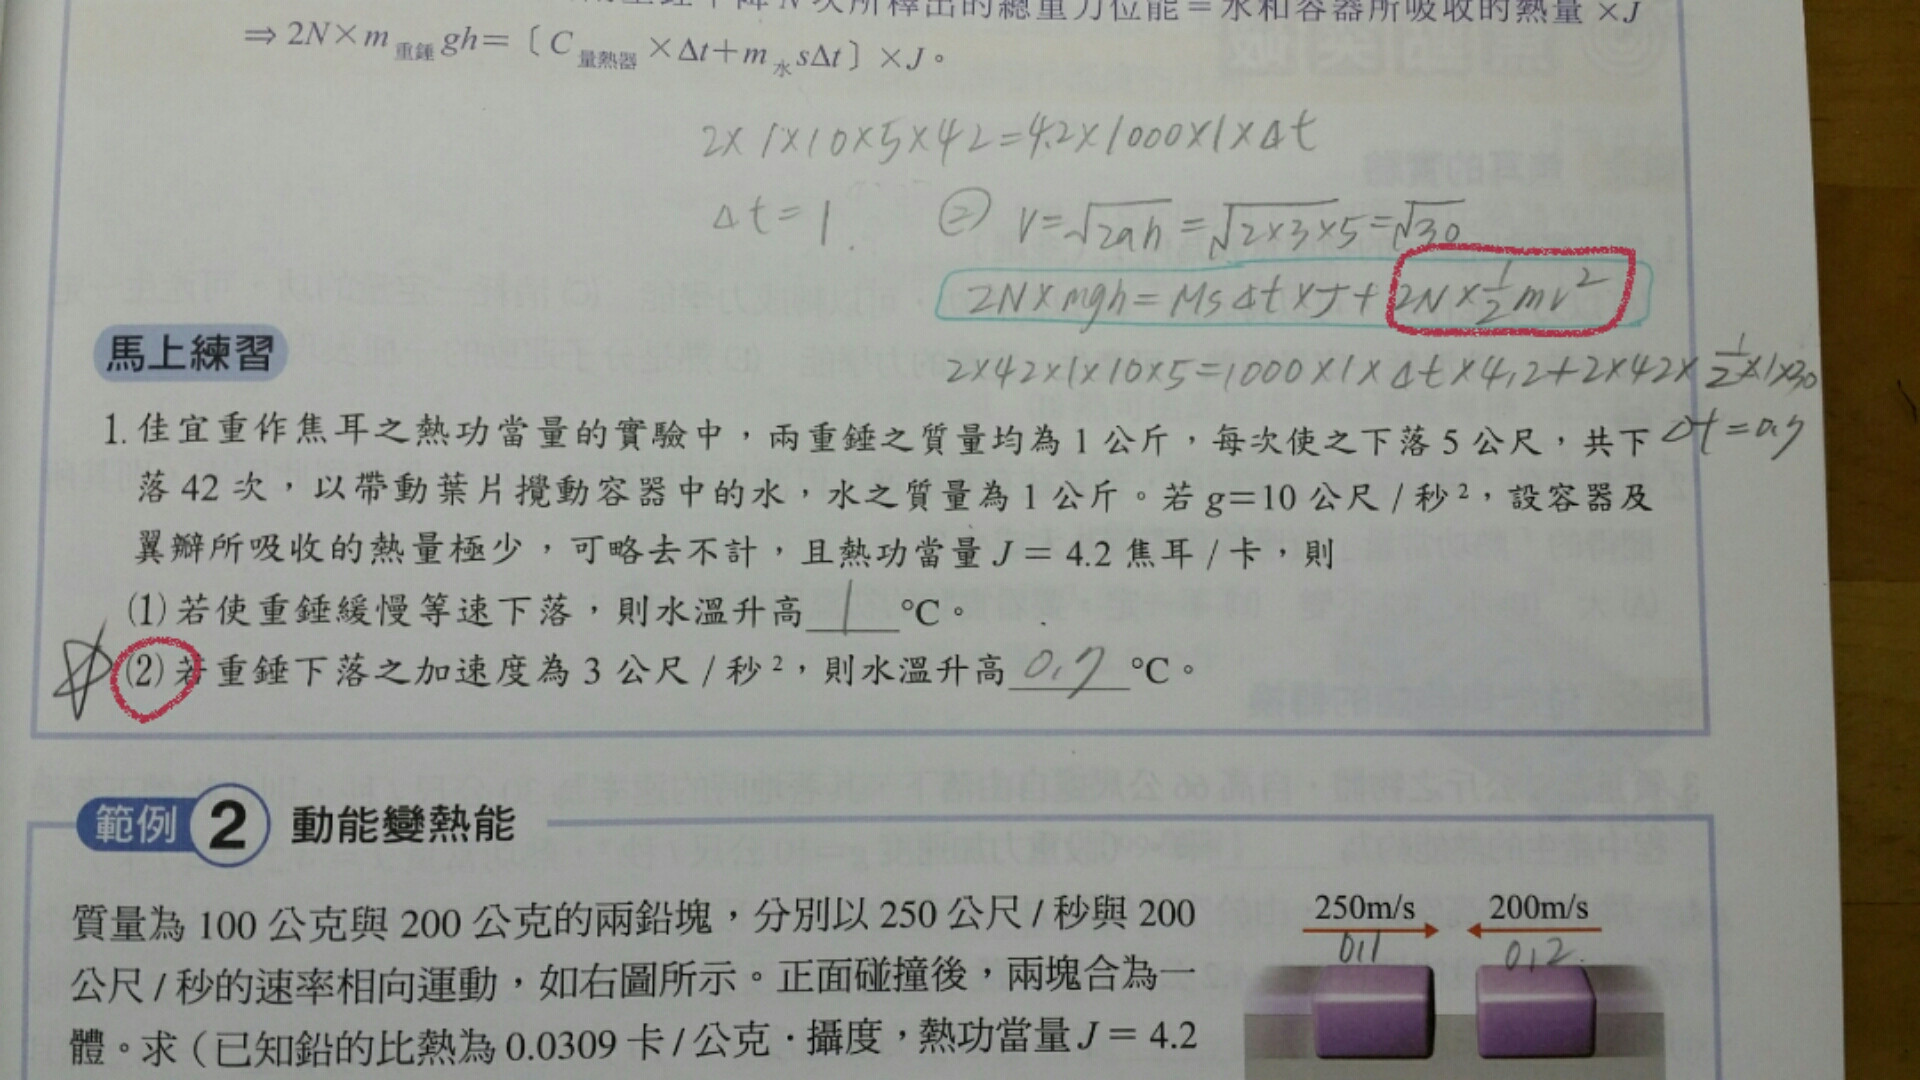 次所釋出的總重力位能=水和容器所吸收的熱量×J
⇒2N×m重錘gh=〔C量熱器×Δt+m水sΔt〕×J。
2×1×10×5×42=4.2×1000×1×Δt
Δt=1.
② V=√2ah=√2×3×5=√30
2N×mgh=MsΔt×J+2N×1/2mv²
2×42×1×10×5=1000×1×Δt×4.2+2×42×1/2×1×30
Δt=0.7
馬上練習
1.佳宜重作焦耳之熱功當量的實驗中,兩重錘之質量均為1公斤,每次使之下落5公尺,共下
落42次,以帶動葉片攪動容器中的水,水之質量為1公斤。若g=10公尺/秒²,設容器及
翼瓣所吸收的熱量極少,可略去不計,且熱功當量J=4.2焦耳/卡,則
(1)若使重錘緩慢等速下落,則水溫升高 1 ℃。
(2)若重錘下落之加速度為3公尺/秒²,則水溫升高 0.7 ℃。
範例2 動能變熱能
質量為100公克與200公克的兩鉛塊,分別以250公尺/秒與200
公尺/秒的速率相向運動,如右圖所示。正面碰撞後,兩塊合為一
體。求(已知鉛的比熱為0.0309卡/公克·攝度,熱功當量J=4.2
250m/s 200m/s
0.1 0.2